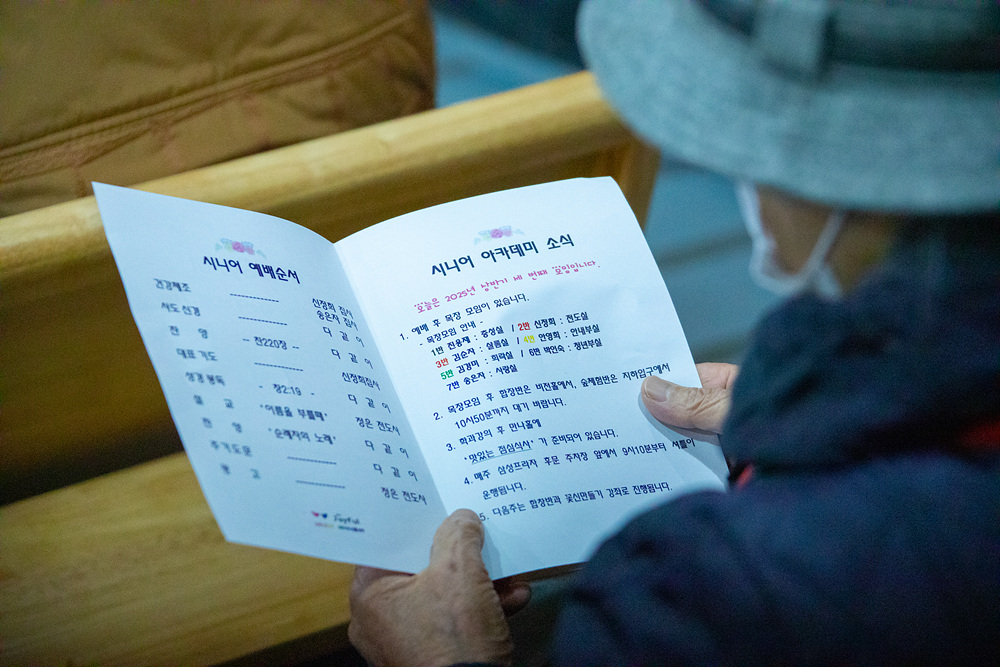 시니어 예배순서
건강체조 ---------- 신정희 집사
사도신경 ---------- 송은자 집사
찬 양 - 찬220장 - 다 같 이
대표기도 ---------- 다 같 이
성경봉독 - 창2:19 - 신정희집사
설 교 "이름을 부를때" 다 같 이
찬 양 "순례자의 노래" 정은 전도사
주기도문 ---------- 다 같 이
광 고 ---------- 다 같 이
정은 전도사
Joyful
시니어 아카데미 소식
오늘은 2025년 상반기 네 번째 모임입니다.
1. 예배 후 목장 모임이 있습니다.
- 목장모임 안내 -
1반 진용제 : 충성실 / 2반 신정희 : 전도실
3반 김순자 : 실룸실 / 4반 안영희 : 안내부실
5반 김경미 : 희락실 / 6반 박인숙 : 청년부실
7반 송은자 : 사랑실
2. 목장모임 후 합창반은 비전홀에서, 숲체험반은 지하입구에서
10시50분까지 대기 바랍니다.
3. 학과강의 후 만나홀에
"맛있는 점심식사" 가 준비되어 있습니다.
4. 매주 삼성프라자 후문 주차장 앞에서 9시10분부터 셔틀이
운행됩니다.
5. 다음주는 합창반과 꽃신만들기 강좌로 진행됩니다.